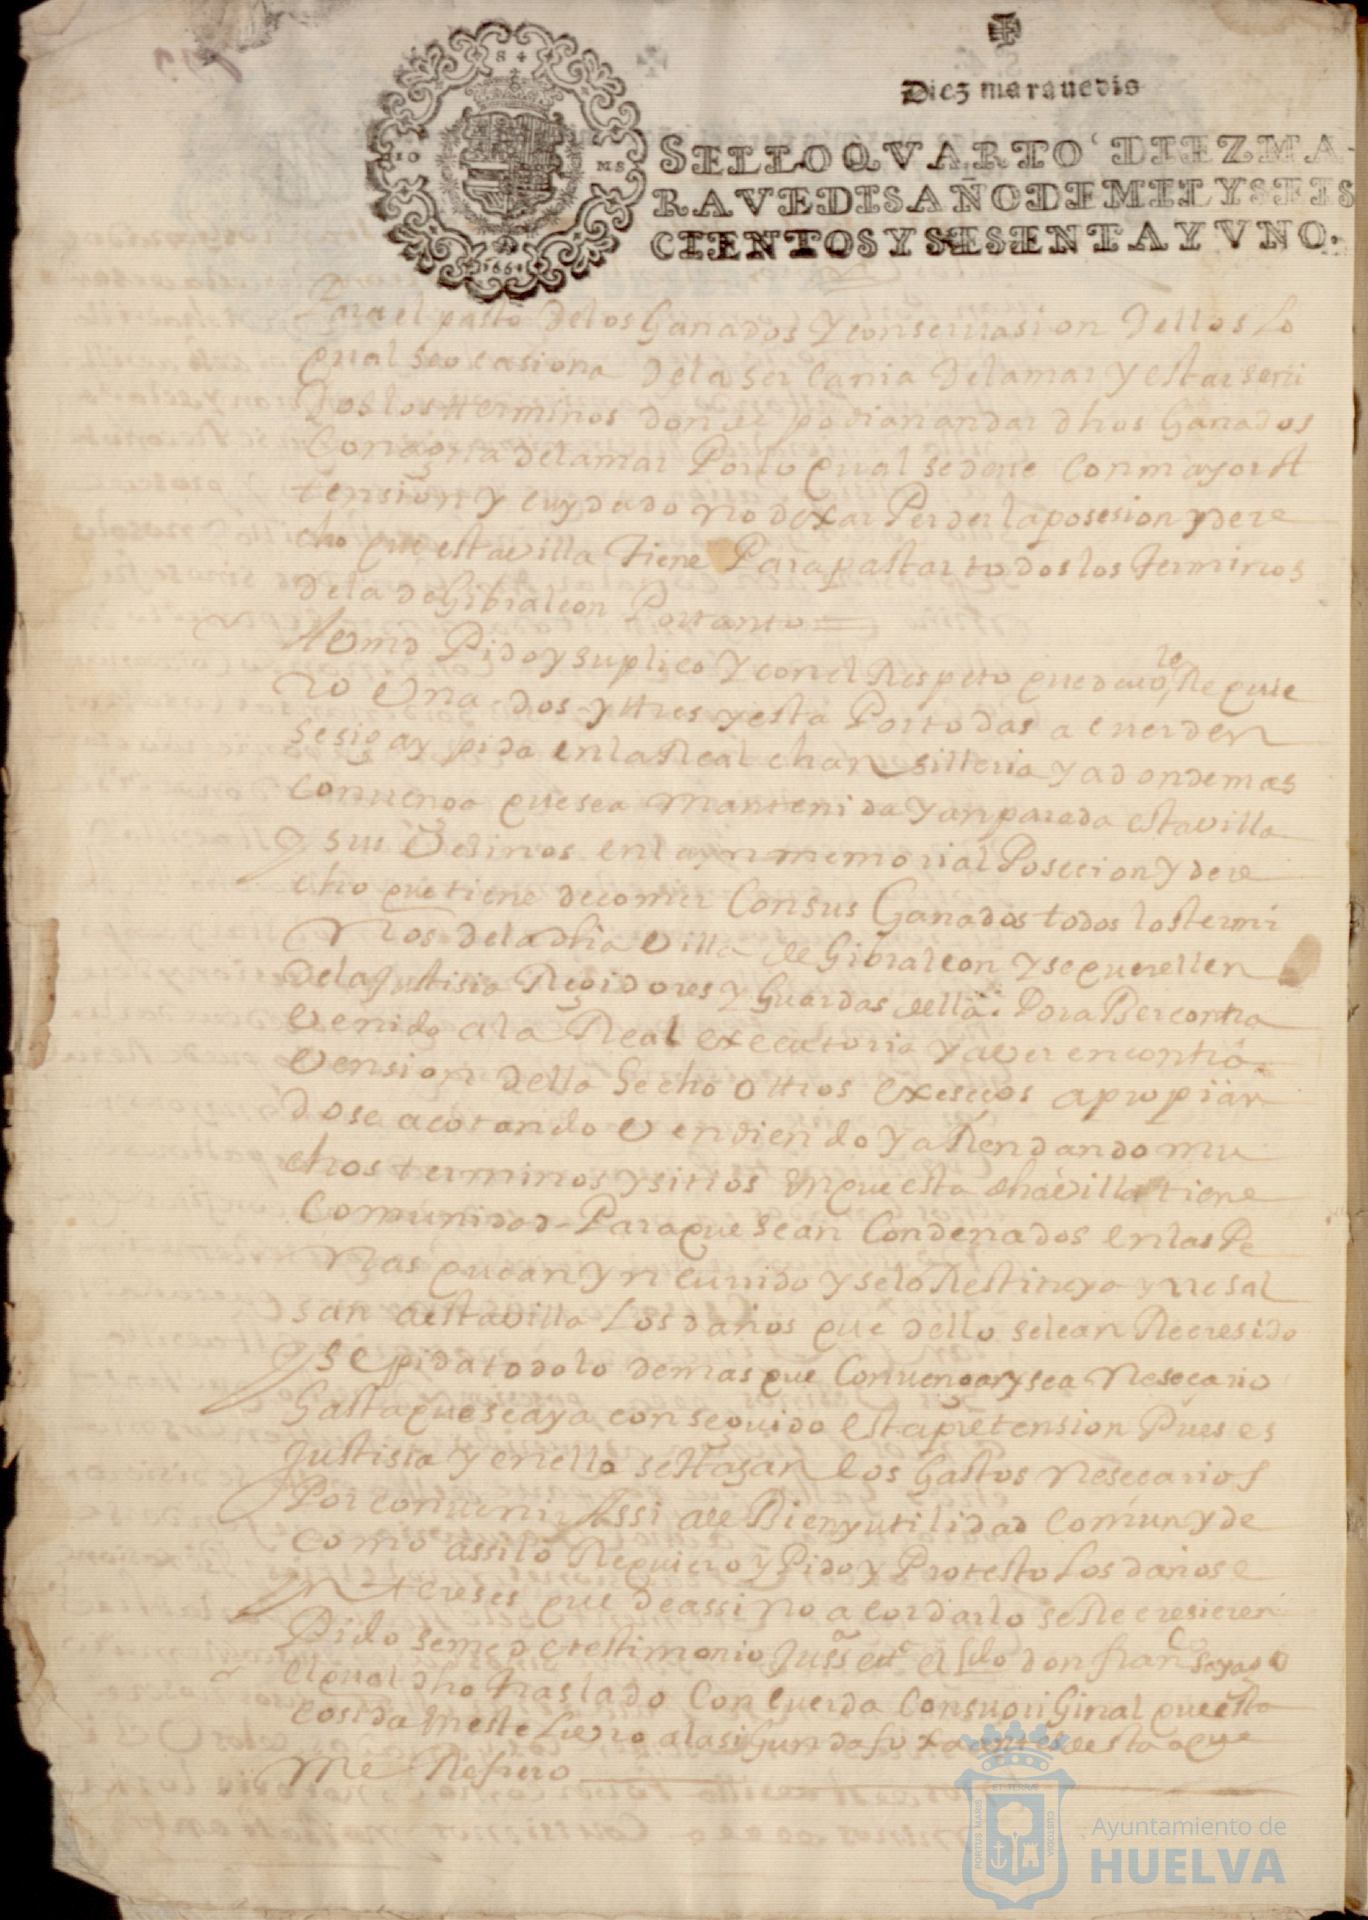 Diez marauedis
SELLO QVARTO DIEZ MA-
RAVEDIS AÑO DE MIL Y SEIS
CIENTOS Y SESENTA Y VNO.
1661
Para el pasto de los Ganados Y conseruasion dellos Lo
qual se ocasiona de la sercania de la mar y estar
los terminos donde podian andar dhos Ganados
Con agua de la mar Por lo qual se deue con mayor A
tension y cuydado no dexar Perder la posesion y dere
cho que esta villa tiene Para pastar todos los terminos
de la de Gibraleon Por tanto
A Vmd Pido y suplico Y con el Respeto que deuo le Requie
ro Vna dos y ttres y esta Por todas acuerden
se siga y pida en la Real chansilleria y a donde mas
conuenga que sea mantenida Y anparada esta villa
y sus Vesinos en la ynmemorial Posecion y dere
cho que tiene de comer Con sus Ganados todos los termi
nos de la dha Villa de Gibraleon y se querellen
de la Justisia Regidores y Guardas della Por aber contra
venido a la Real executoria y aver en contra
vension della hecho ottros exsesos apropian
dose acotando Vendiendo y aRendando mu
chos terminos y sitios en que esta dha villa tiene
Comunidad Para que sean Condenados en las Pe
nas que an yncurrido y se lo Restituya y rresal
san a esta villa Los daños que dello se le an Recresido
y se pida todo lo demas que Conuenga y sea Nesesario
hasta que se aya conseguido esta pretension Pues es
Justisia y en ello se hagan los Gastos Nesesarios
Por conuenir Assi al Bien y utilidad Comun y de
como assi lo Requiero y Pido y Protesto Los daños e
yntereses que de assi no acordarlo se Recresieren
Pido se me de testimonio Jussª ettª el Ldo don franco
el qual dho traslado Concuerda Con su oriGinal que esta
cosida en este Livro a la sigunda foxa antes desta a que
me Refiero
PORTUS MARIS ET TERRÆ CUSTODIA
Ayuntamiento de
HUELVA